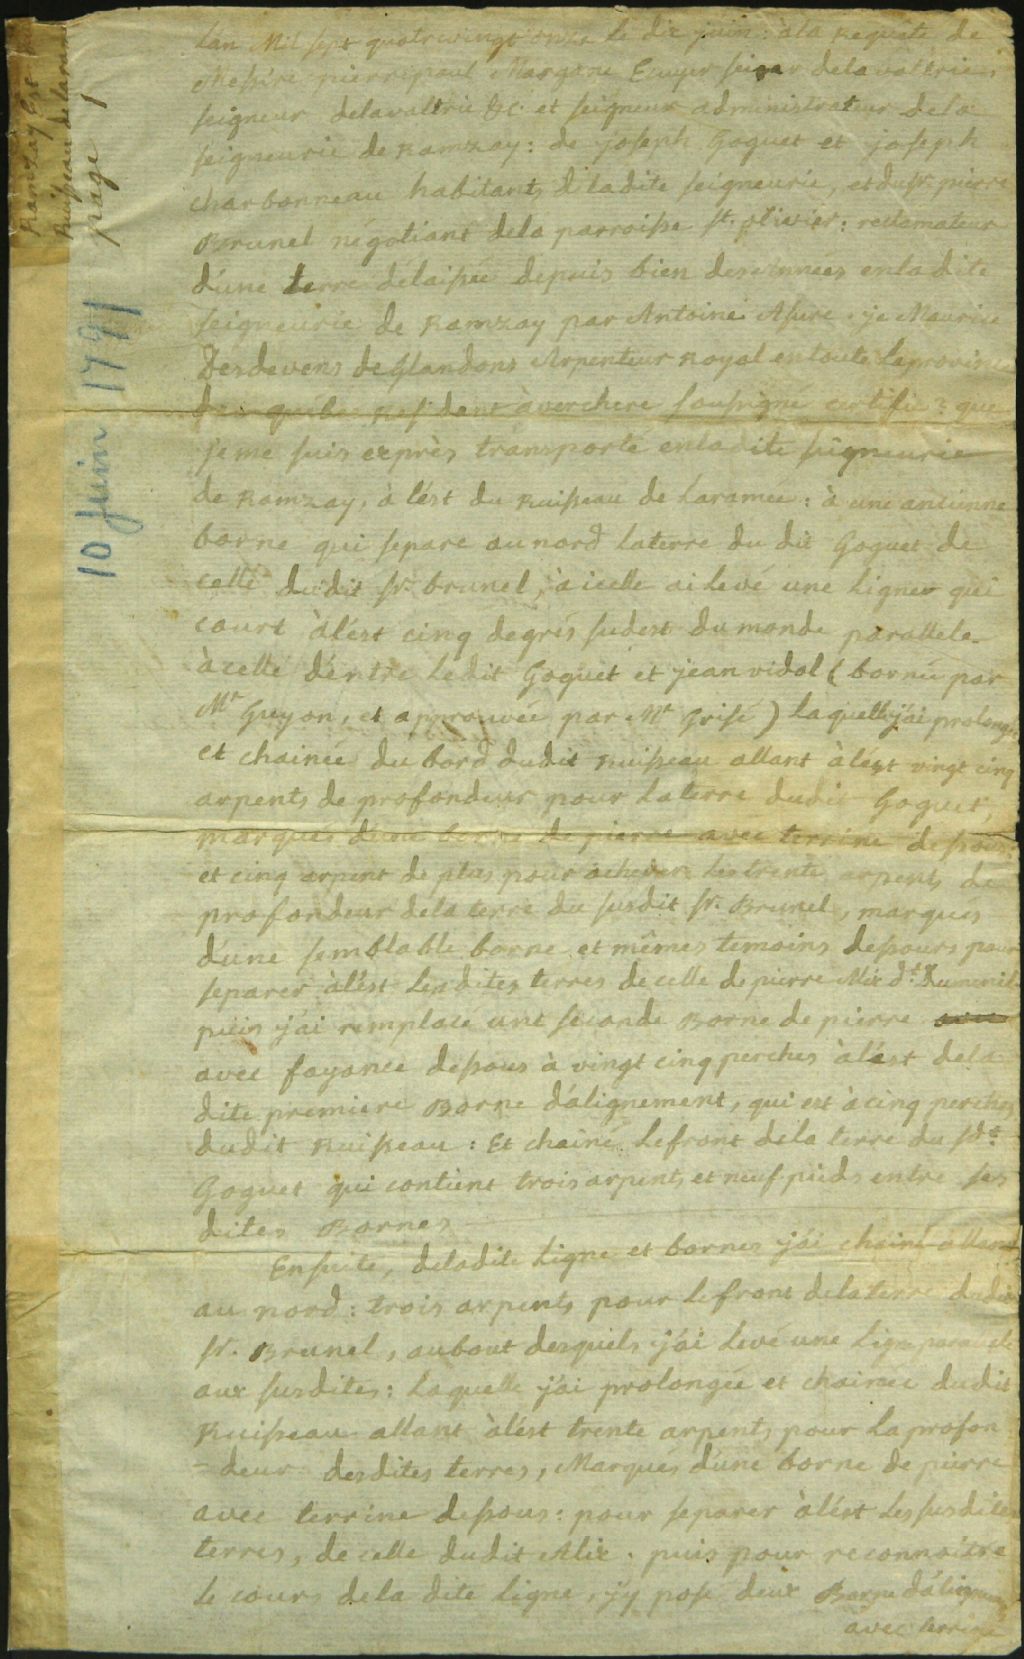 Ramzay Est
Ruisseau de laramée
page 1
10 Juin 1791
Lan Mil sept quatrevingt onze le dix juin: à la Requete de
Messire pierre paul Margane Ecuyer delavaltrie,
seigneur delavaltrie &c. et seigneur administrateur dela
seigneurie de Ramzay: de joseph Goguet et joseph
charbonneau habitants diladite seigneurie, et du sr. pierre
Brunel négotiant dela parroisse st. olivier: reclamateur
d'une terre délaissée depuis bien des années enladite
seigneurie de Ramzay par Antoine Asure. je Maurice
Desdevens deGlandons Arpenteur Royal en toute laprovince
de quebec Résident à verchere soussigné certifie: que
je me suis exprès transporté enladite seigneurie
de Ramzay, à l'ést du Ruisseau de Laramée: à une ancienne
borne qui separe au nord laterre du dit Goguet de
celle dudit sr. brunel, à icelle ai Levé une Ligne qui
court à l'ést cinq degrés sudest du monde parallele
à celle d'entre Ledit Goguet et jean vidal (bornée par
Mr Guyon, et approuvée par Mr Grisé) laquelle j'ai prolongée
et chainée du bord dudit Ruisseau allant à l'ést vingt cinq
arpents de profondeur pour laterre dudit Goguet,
marqués d'une borne de pierre avec terrine dessous:
et cinq arpent de plus pour achever les trente arpents de
profondeur dela terre du susdit sr. Brunel, marqués
d'une semblable borne et mêmes temoins dessous pour
separer à l'ést Lesdites terres de celle de pierre Alix dt. Dumenil
puis j'ai remplacé une seconde Borne de pierre
avec fayance dessous à vingt cinq perches à l'ést dela
dite premiere Borne d'alignement, qui est à cinq perches
dudit Ruisseau: Et chainé le front dela terre du sdt.
Goguet qui contient trois arpents et neuf pieds entre ses
dites Bornes
Ensuite, deladite Ligne et bornes j'ai chainé allant
au nord: trois arpents pour le front delaterre dudit
sr. Brunel, au bout desquels j'ai Levé une Ligne parallele
aux susdites: Laquelle j'ai prolongée et chainée dudit
Ruisseau allant à l'ést trente arpents pour La profon
-deur desdites terres, Marqués d'une borne de pierre
avec terrine dessous: pour separer à l'ést Les susdites
terres, de celle dudit Alix. puis pour reconnoitre
le cours dela dite Ligne, j'y posé deux Borne d'alignement
avec terrine